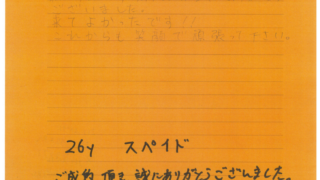 ございました。
来てよかったです!!
これからも笑顔で頑張って下さい。
26y スペイド
ご成約頂き誠にありがとうございました。